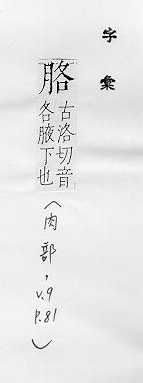 字彙
胳
古洛切音
各腋下也
(肉部,
v.9
p.81)